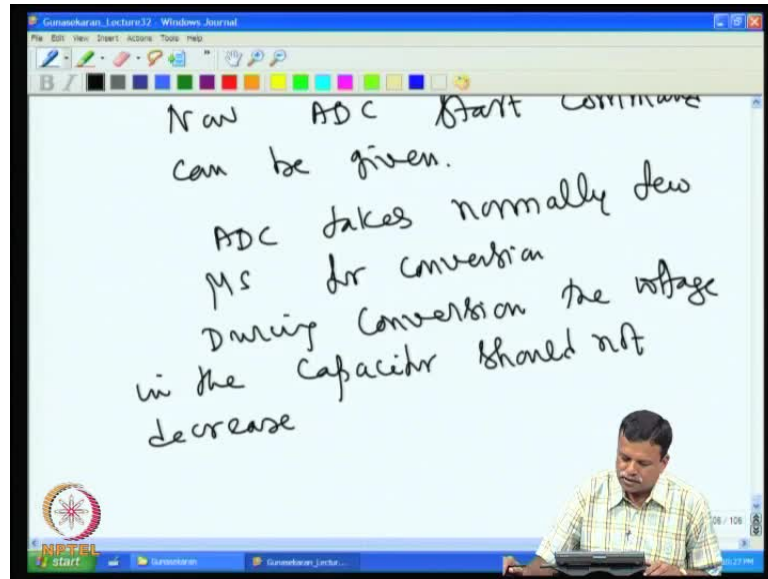 Gunasekaran_Lecture32 - Windows Journal
File Edit View Insert Actions Tools Help
B I
Now ADC start command
can be given.
ADC takes normally few
μs for conversion
During conversion the voltage
in the capacitor should not
decrease
106 / 106
NPTEL
start
Gunasekaran
Gunasekaran_Lectur...
10:27 PM